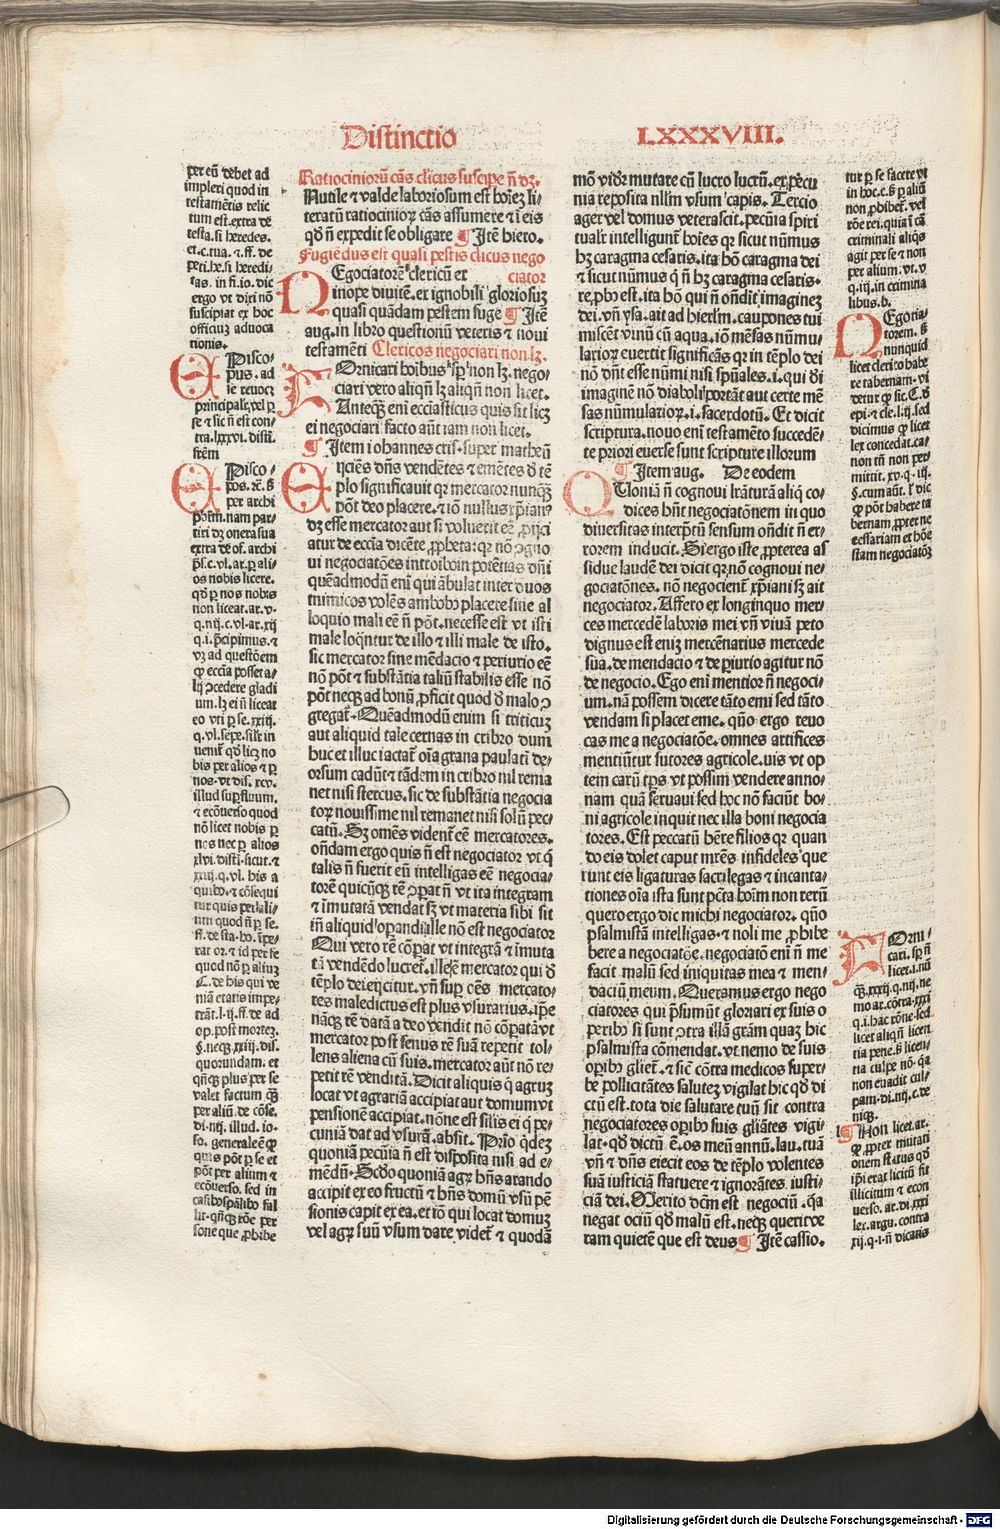 Distinctio
LXXXVIII.
per eū debet ad
impleri quod in
testamētis relic
tum est. extra de
testa. si heredes.
et. c. tua. ⁊. ff. de
peti. he. si heredi⸗
tas. in fi. io. dic
ergo vt dixi nō
suscipiat ex hoc
officiuȝ aduoca
tionis.
EPisco⸗
pus. ad
se reuocȝ
principalr̄. vel ꝑ
se ⁊ sic ñ est con⸗
tra. lxxvi. disti.
frēm
EPisco⸗
pos. ⁊c. ß
per archi
nam par⸗
tiri dȝ onera sua
extra de of. archi
ꝑ ali⸗
os nobis licere.
qd ꝑ nos nobis
non liceat. ar. v.
q. nij. c. vl. ar. xij
q. i. p̄cipimus. ⁊
vȝ ad questōem
ꝙ ecc̄ia posset a⸗
lij ꝯcedere gladi
um. lȝ ei ñ liceat
eo vti ꝑ se. xxiij.
q. vl. sepe. silr̄ in
uenit̄ qd licȝ no
bis per alios ⁊ ꝑ
nos. vt dis. xcv.
illud suꝑfluum.
⁊ ecōuerso quod
nō licet nobis ꝑ
nos nec ꝑ alios
xlvi. disti. sicut. ⁊
xxiij. q. vl. his a
quibꝰ. ⁊ cōsequi
tur quis per ali⸗
um quod ñ ꝑ se.
ff. de sta. ho. īpe⸗
rator. ⁊ id per se
quod nō ꝑ aliuȝ
C. de his qui ve
niā etatis impe⸗
trāt. l. ij. ff. de ad
op. post morteȝ.
§. necqȝ. xxiij. dis.
quorundam. et
qñqȝ plus per se
valet factum qȝ
per aliū. de cōse.
di. nij. illud. io⸗
so. generale ē ꝙ
quis pōt ꝑ se et
pōt per alium ⁊
ecōuerso. sed in
casibꝰ spālibꝰ fal
lit. qñqȝ rōe per
sone que ꝓhibe
Ratiociniorū cās cl̄icus suscipe ñ dȝ.
Nutile ⁊ valde laboriosum est hoīeȝ li⸗
teratū ratiocinioꝝ cās assumere ⁊ ī eis
qd ñ expedit se obligare ¶ Itē hiero.
Fugiēdus est quasi pestis cl̄icus nego
ciator
NEgociatorē clericū ex
inope diuitē. ex ignobili gloriosuȝ
quasi quādam pestem fuge ¶ Itē
aug. in libro questionū veteris ⁊ noui
testamēti Clericos negociari non lȝ.
FOrnicari hoībus sp̄ non lȝ. nego⸗
ciari vero aliqñ lȝ aliqñ non licet.
Anteqȝ enī ecc̄iasticus quis sit licȝ
ei negociari facto aūt iam non licet.
¶ Item iohannes cris. super matheū
EIjciēs dn̄s vendētes ⁊ emētes d̓ tē
plo significauit qꝛ mercator nunqȝ
pōt deo placere. ⁊ iō nullus xp̄ian⸗
dȝ esse mercator aut si voluerit eē ꝓijci
atur de ecc̄ia dicēte ꝓpheta: qꝛ nō ꝯgno
ui negociatōes introibo in potētias dn̄i
quēadmodū enī qui ābulat inter duos
inimicos volēs ambobꝰ placere sine al
loquio mali eē ñ pōt. necesse est vt isti
male loqn̄tur de illo ⁊ illi male de isto.
sic mercator sine mēdacio ⁊ periurio eē
nō pōt ⁊ substātia taliū stabilis esse nō
pōt neqȝ ad bonū ꝓficit quod d̓ malo ꝯ
gregat̄. Quēadmodū enim si triticuȝ
aut aliquid tale cernas in cribro dum
huc et illuc iactat̄ oīa grana paulati de⸗
orsum cadūt ⁊ tādem in cribro nil rema
net nisi stercus. sic de substātia negocia
toꝝ nouissime nil remanet nisi solū pec⸗
catū. Sȝ omēs vident̄ eē mercatores.
on̄dam ergo quis ñ est negociator vt q̇
talis ñ fuerit eū intelligas eē negocia⸗
torē quicūqȝ rē ꝯꝑat ñ vt ita integram
⁊ īmutatā vendat sȝ vt materia sibi sit
inī aliquid oꝑandi ille nō est negociator
Qui vero rē cōꝑat vt integrā ⁊ īmuta
tā vendēdo lucret̄. ille ē mercator qui d̓
tēplo dei eijcitur. vn̄ suꝑ oēs mercato⸗
res maledictus est plus vsurarius. ip̄e
nāqȝ rē datā a deo vendit nō cōꝑatā vt
mercator post fenus rē suā repetit tol⸗
lens aliena cū suis. mercator aūt nō re⸗
petit rē venditā. Dicit aliquis q̇ agruȝ
locat vt agrariā accipiat aut domum vt
pensionē accipiat. nōne est silis ei q̇ pe⸗
cuniā dat ad vsurā. absit. Prīo q̇deȝ
quoniā pecūia ñ est disposita nisi ad e⸗
mēdū. Scdo quoniā agꝝ hn̄s arando
accipit ex eo fructū ⁊ hn̄s domū vsū pē
sionis capit ex ea. et iō qui locat domuȝ
vel agꝝ suū vsum dare videt̄ ⁊ quodā
mō vid̄r mutare cū lucro lucrū. ex pecu
nia reposita nllm̄ vsum capis. Tercio
ager vel domus veterascit. pecūia spiri
tualr̄ intelligunt̄ hoīes qꝛ sicut nūmus
hȝ caragma cesaris. ita hō caragma dei
⁊ sicut nūmus q̇ ñ hȝ caragma cesaris.
re. ꝓbꝰ est. ita hō qui ñ on̄dit imagineȝ
dei. vn̄ ysa. ait ad hierlm̄. caupones tui
miscēt vinū cū aqua. iō mēsas nūmu⸗
larioꝝ euertit significās qꝛ in tēplo dei
nō dn̄t esse nūmi nisi spūales. i. qui d̓i
imaginē nō diaboli portāt aut certe mē
sas nūmularioꝝ. i. sacerdotū. Et dicit
scriptura. nouo enī testamēto succedē⸗
te priori euerse sunt scripture illorum
¶ Item aug. De eodem
QUoniā ñ cognoui lr̄aturā aliq̇ co⸗
dices hn̄t negociatōnem in quo
diuersitas interp̄tū sensum on̄dit ñ er⸗
rorem inducit. Si ergo iste ꝓpterea as
sidue laudē dei dicit qꝛ nō cognoui ne⸗
gociatōnes. nō negocient̄ xp̄iani sȝ ait
negociator. Affero ex longinquo mer⸗
ces mercedē laboris mei vn̄ viuā peto
dignus est eniȝ mercēnarius mercede
sua. de mendacio ⁊ de ꝑiurio agitur nō
de negocio. Ego enī mentior ñ negoci⸗
um. nā possem dicere tāto emi sed tāto
vendam si placet eme. quō ergo reuo
cas me a negociatōe. omnes artifices
mentiūtur sutores agricole. uis vt op
tem carū tp̄s vt possim vendere anno⸗
nam quā seruaui sed hoc nō faciūt bo⸗
ni agricole inquit nec illa boni negocia
tores. Est peccatū hēre filios qꝛ quan
do eis dolet caput mr̄es infideles que
runt eis ligaturas sacrilegas ⁊ incanta⸗
tiones oīa ista sunt pctā hoīm non rerū
quero ergo dic michi negociator. quō
psalmistā intelligas. ⁊ noli me ꝓhibe
bere a negociatōe. negociatō enī ñ me
facit malū sed iniquitas mea ⁊ men⸗
daciū meum. Queramus ergo nego
ciatores qui p̄sumūt gloriari ex suis o
peribꝰ si sunt ꝯtra illā grām quaȝ hic
psalmista cōmendat. vt nemo de suis
oꝑibꝰ gliet̄. ⁊ sic cōtra medicos super⸗
be pollicitātes saluteȝ vigilat hic qd di
ctū est. tota die salutare tuū sit contra
negociatores oꝑibꝰ suis gliātes vigi⸗
lat. qd dictū ē. os meū annū. lau. tuā
vn̄ ⁊ dn̄s eiecit eos de tēplo volentes
suā iusticiā statuere ⁊ ignorātes iusti⸗
ciā dei. Merito dc̄m est negociū. q̄a
negat ociū qd malū est. neqȝ querit ve
ram quietē que est deus ¶ Itē cassio.
tur ꝑ se facere vt
in hoc. c. ß ꝑ aliū
non ꝓhibet̄. vel
rōe rei. quia ī cā
criminali aliq̇s
agit per se ⁊ non
per alium. vt. v.
q. iij. in crimina
libus. b.
NEgotia⸗
torem. ß
nunquid
licet clerico habe
re tabernam. vi
detur ꝙ sic. C. d̓
epi. ⁊ cle. l. ij. sed
dicimus ꝙ licet
lex concedat. ca⸗
non tn̄ non per⸗
mittit. xv. q. iij.
§. cum aūt. l dic
ꝙ pōt habere ta
bernam ꝓpter ne
cessariam et hōe
stam negociatōȝ
FOrni⸗
cari. sꝑ ñ
licet. i. nū
qȝ. xxxij. q. iiij. ne
mo. ar. cōtra. xxxi
q. i. hac rōne. sed
licet aliqñ licen
tia pene. ß licen⸗
tia culpe nō. q̄a
non euadit cul⸗
pam. di. iiij. c. de
niqȝ.
¶ Non licet. ar.
ꝙ ꝓpter mutati
onem status qd
p̄ erat licitū fit
illicitum ⁊ econ
uerso. ar. di. xxxi
lex. argu. contra
xij. q. i. ñ dicatis
Digitalisierung gefördert durch die Deutsche Forschungsgemeinschaft - DFG